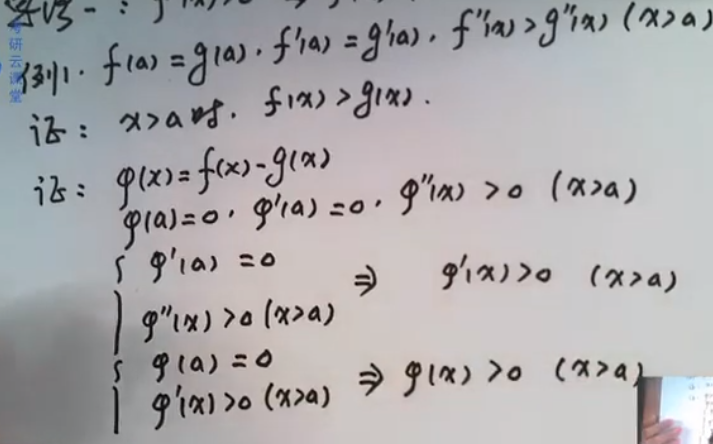 例1. f(a)=g(a). f'(a)=g'(a). f''(x)>g''(x) (x>a)
证: x>a时. f(x)>g(x).
证: φ(x)=f(x)-g(x)
φ(a)=0. φ'(a)=0. φ''(x)>0 (x>a)
{ φ'(a)=0
φ''(x)>0 (x>a) ⇒ φ'(x)>0 (x>a)
{ φ(a)=0
φ'(x)>0 (x>a) ⇒ φ(x)>0 (x>a)
考研云课堂